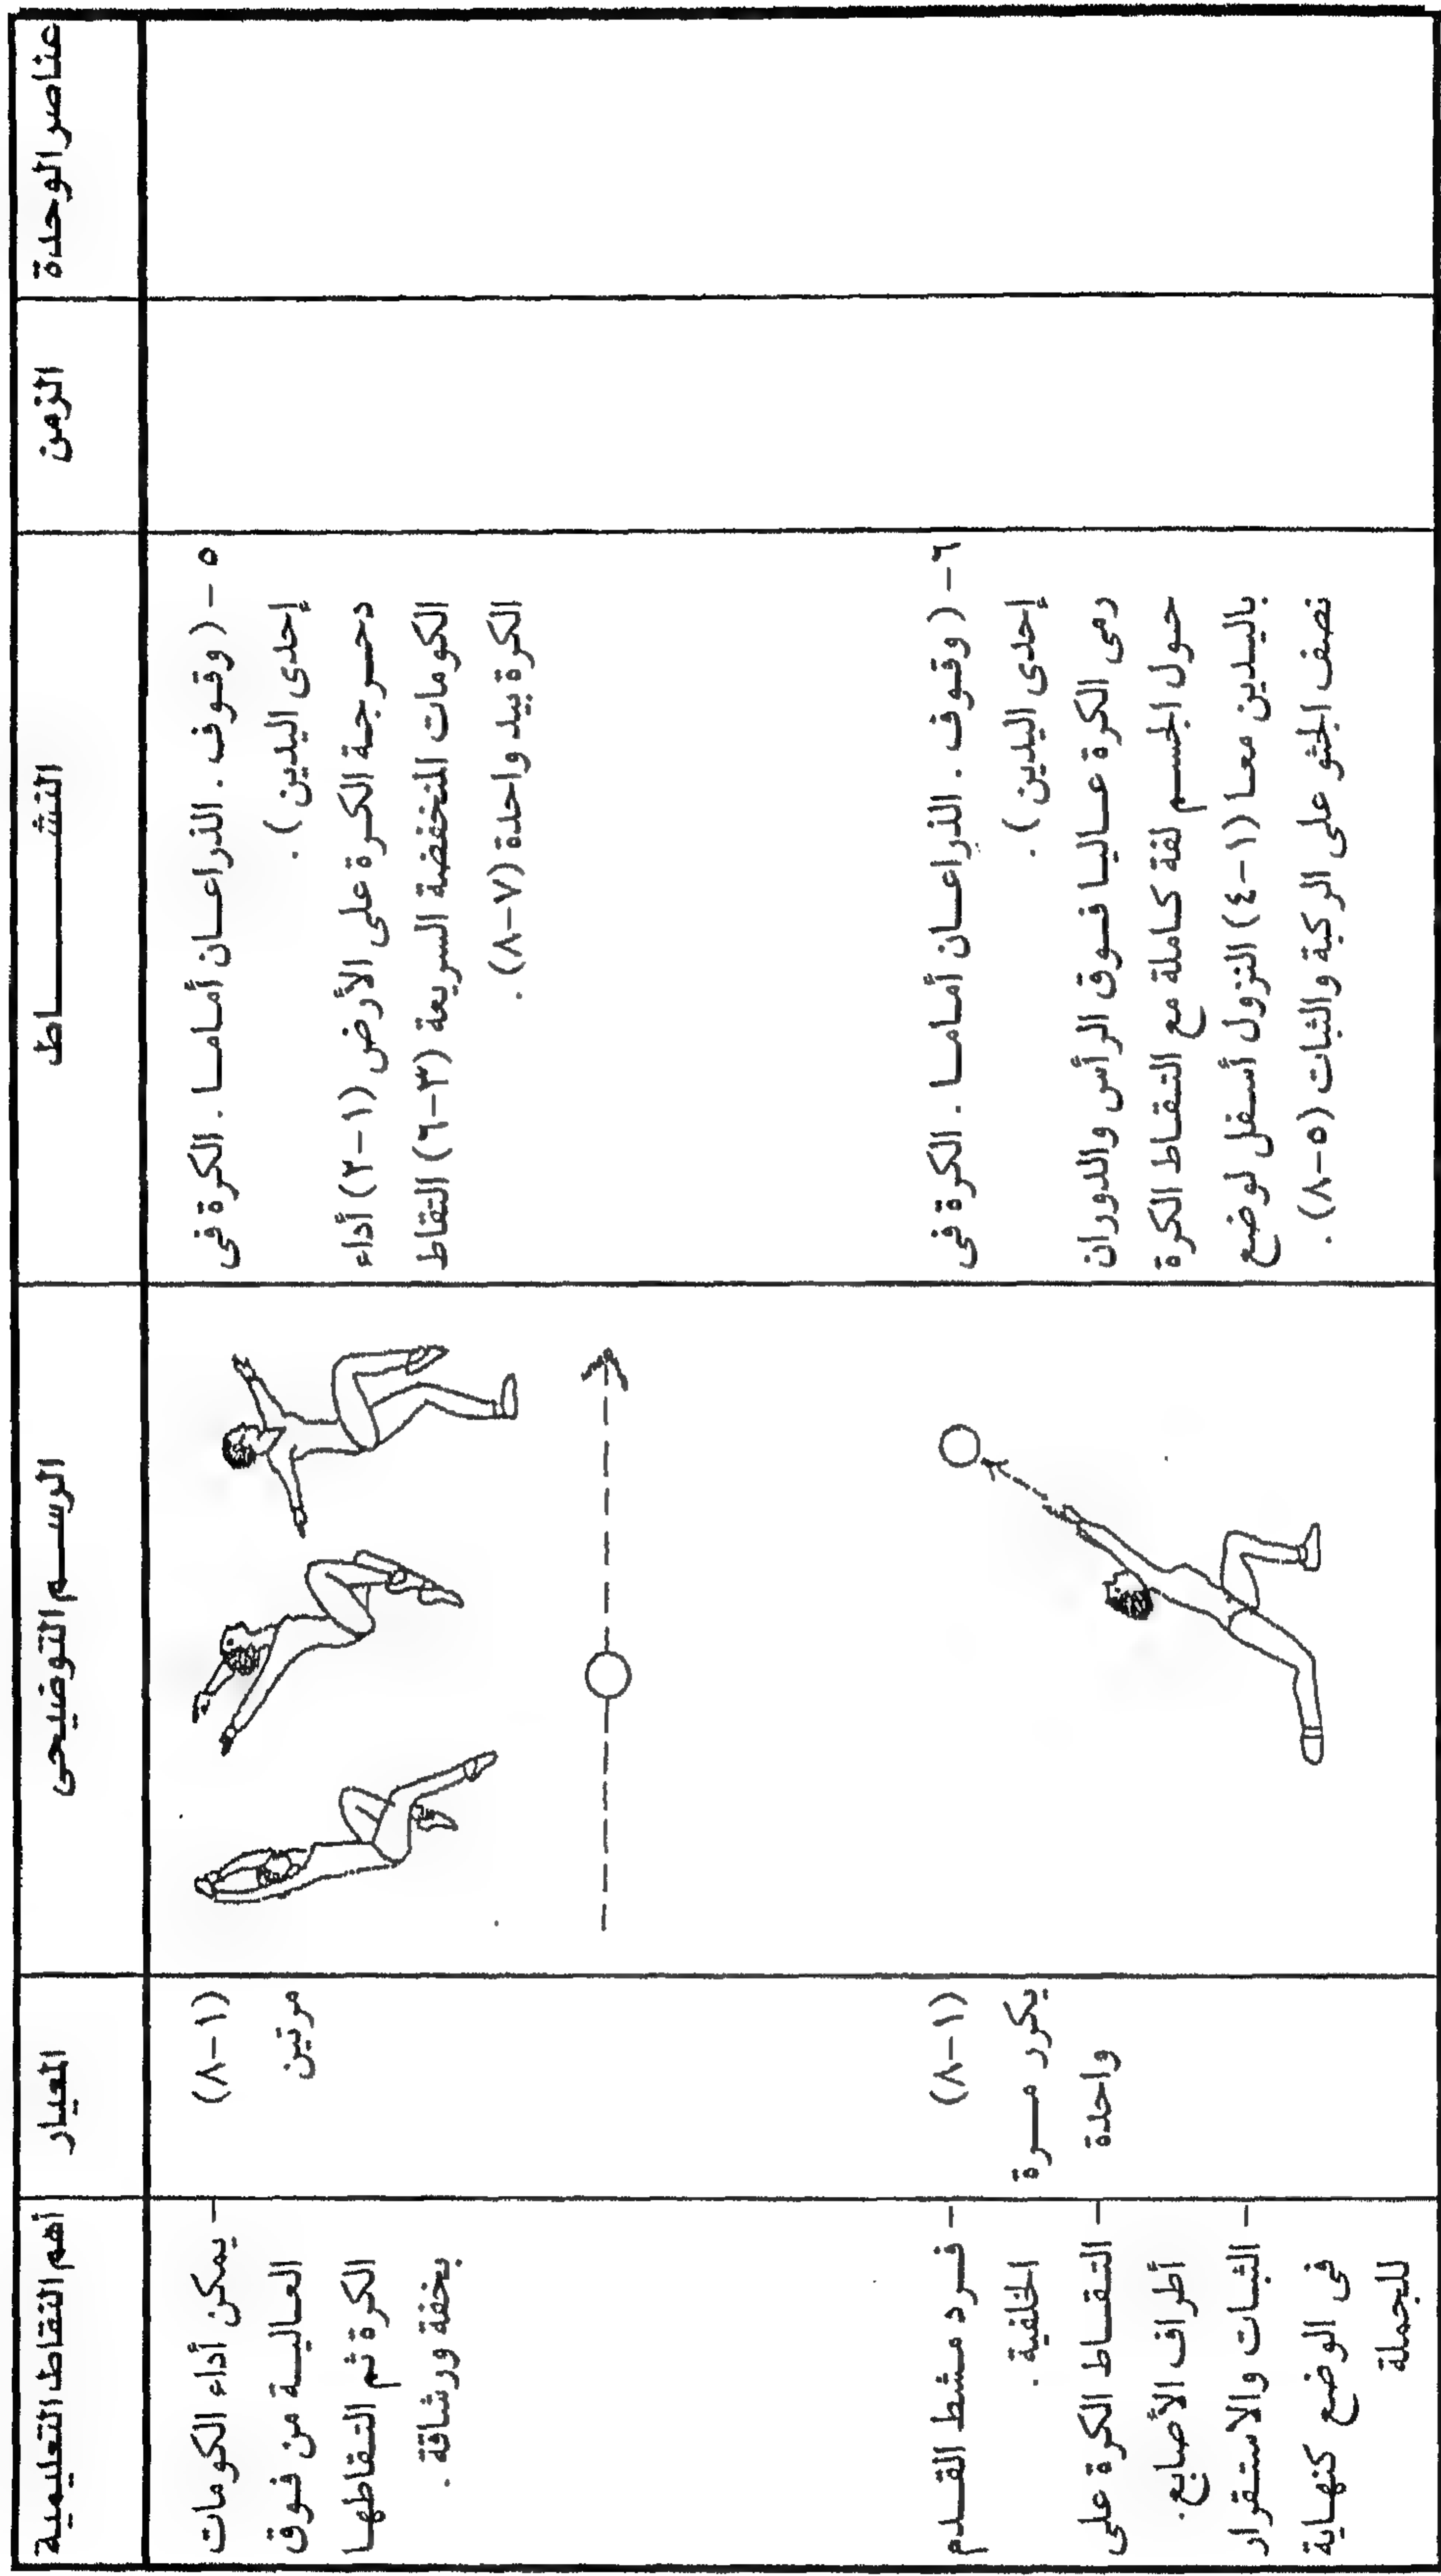 عناصر الوحدة
الزمن
النشـــــــاط
الرســم التوضيحى
المعيار
أهم النقاط التعليمية
٥ - ( وقــوف . الذراعــان أمـامــا . الكرة فى
إحدى اليدين ) .
دحــرجة الكــرة على الأرض (١-٢) أداء
الكومات المنخفضة السريعة (٣-٦) التقاط
الكرة بيد واحدة (٧-٨) .
(١-٨)
مرتين
- يمكن أداء الكومات
العاليــة من فــوق
الكرة ثم التقاطهـا
بخفة ورشاقة .
٦- ( وقــوف . الذراعــان أمـامــا . الكرة فى
إحدى اليدين ) .
رمى الكرة عــاليــا فــوق الرأس والدوران
حــول الجـســم لفة كــاملة مع التـقــاط الكرة
باليــدين معــا (١-٤) النزول أسـفـل لوضع
نصف الجثو على الركبة والثبات (٥-٨) .
(١-٨)
يكرر مــرة
واحدة
- فــرد مـشط القــدم
الخلفية .
- التـقــاط الكرة على
أطراف الأصابع.
- الثبـات والاسـتـقـرار
فى الوضع كنهـاية
للجملة